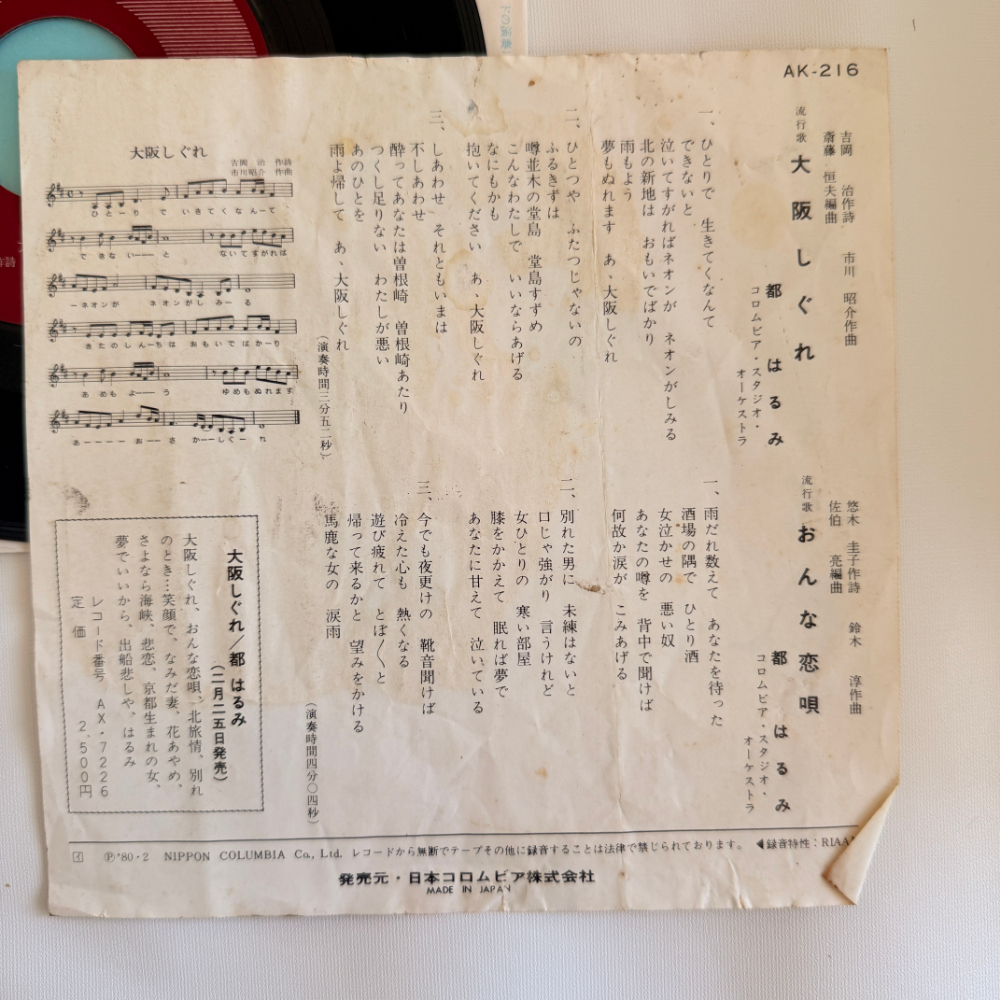 AK-216
流行歌
大阪しぐれ
吉岡 治作詩 市川 昭介作曲
斎藤 恒夫編曲
都 はるみ
コロムビア・スタジオ・
オーケストラ
一、ひとりで 生きてくなんて
できないと
泣いてすがればネオンが ネオンがしみる
北の新地は おもいでばかり
雨もよう
夢もぬれます あゝ大阪しぐれ
二、ひとつや ふたつじゃないの
ふるきずは
噂並木の堂島 堂島すずめ
こんなわたしで いいならあげる
なにもかも
抱いてください あゝ大阪しぐれ
三、しあわせ それともいまは
不しあわせ
酔ってあなたは曽根崎 曽根崎あたり
つくし足りない わたしが悪い
あのひとを
雨よ帰して あゝ大阪しぐれ
(演奏時間三分五二秒)
大阪しぐれ
吉岡 治 作詩
市川昭介 作曲
ひとーり で いきてくなんーて
できないーーと ないてすがれば
ーネオンが ネオンがしみーる
きたのしんーちは おもいでばかーり
あめもよーーう ゆめもぬれます
あーーーーおーーさ かーーしぐーれ
流行歌
おんな恋唄
悠木 圭子作詩 鈴木 淳作曲
佐伯 亮編曲
都 はるみ
コロムビア・スタジオ・
オーケストラ
一、雨だれ数えて あなたを待った
酒場の隅で ひとり酒
女泣かせの 悪い奴
あなたの噂を 背中で聞けば
何故か涙が こみあげる
二、別れた男に 未練はないと
口じゃ強がり 言うけれど
女ひとりの 寒い部屋
膝をかかえて 眠れば夢で
あなたに甘えて 泣いている
三、今でも夜更けの 靴音聞けば
冷えた心も 熱くなる
遊び疲れて とぼ〱と
帰って来るかと 望みをかける
馬鹿な女の 涙雨
(演奏時間四分〇四秒)
大阪しぐれ/都 はるみ
(二月二五日発売)
大阪しぐれ、おんな恋唄、北旅情、別れ
のとき…笑顔で、なみだ妻、花あやめ、
さよなら海峡、悲恋、京都生まれの女、
夢でいいから、出船悲しや、はるみ
レコード番号 AX・7226
定価 2,500円
イ Ⓟ'80・2 NIPPON COLUMBIA Co., Ltd. レコードから無断でテープその他に録音することは法律で禁じられております。 ◀録音特性:RIAA
発売元・日本コロムビア株式会社
MADE IN JAPAN